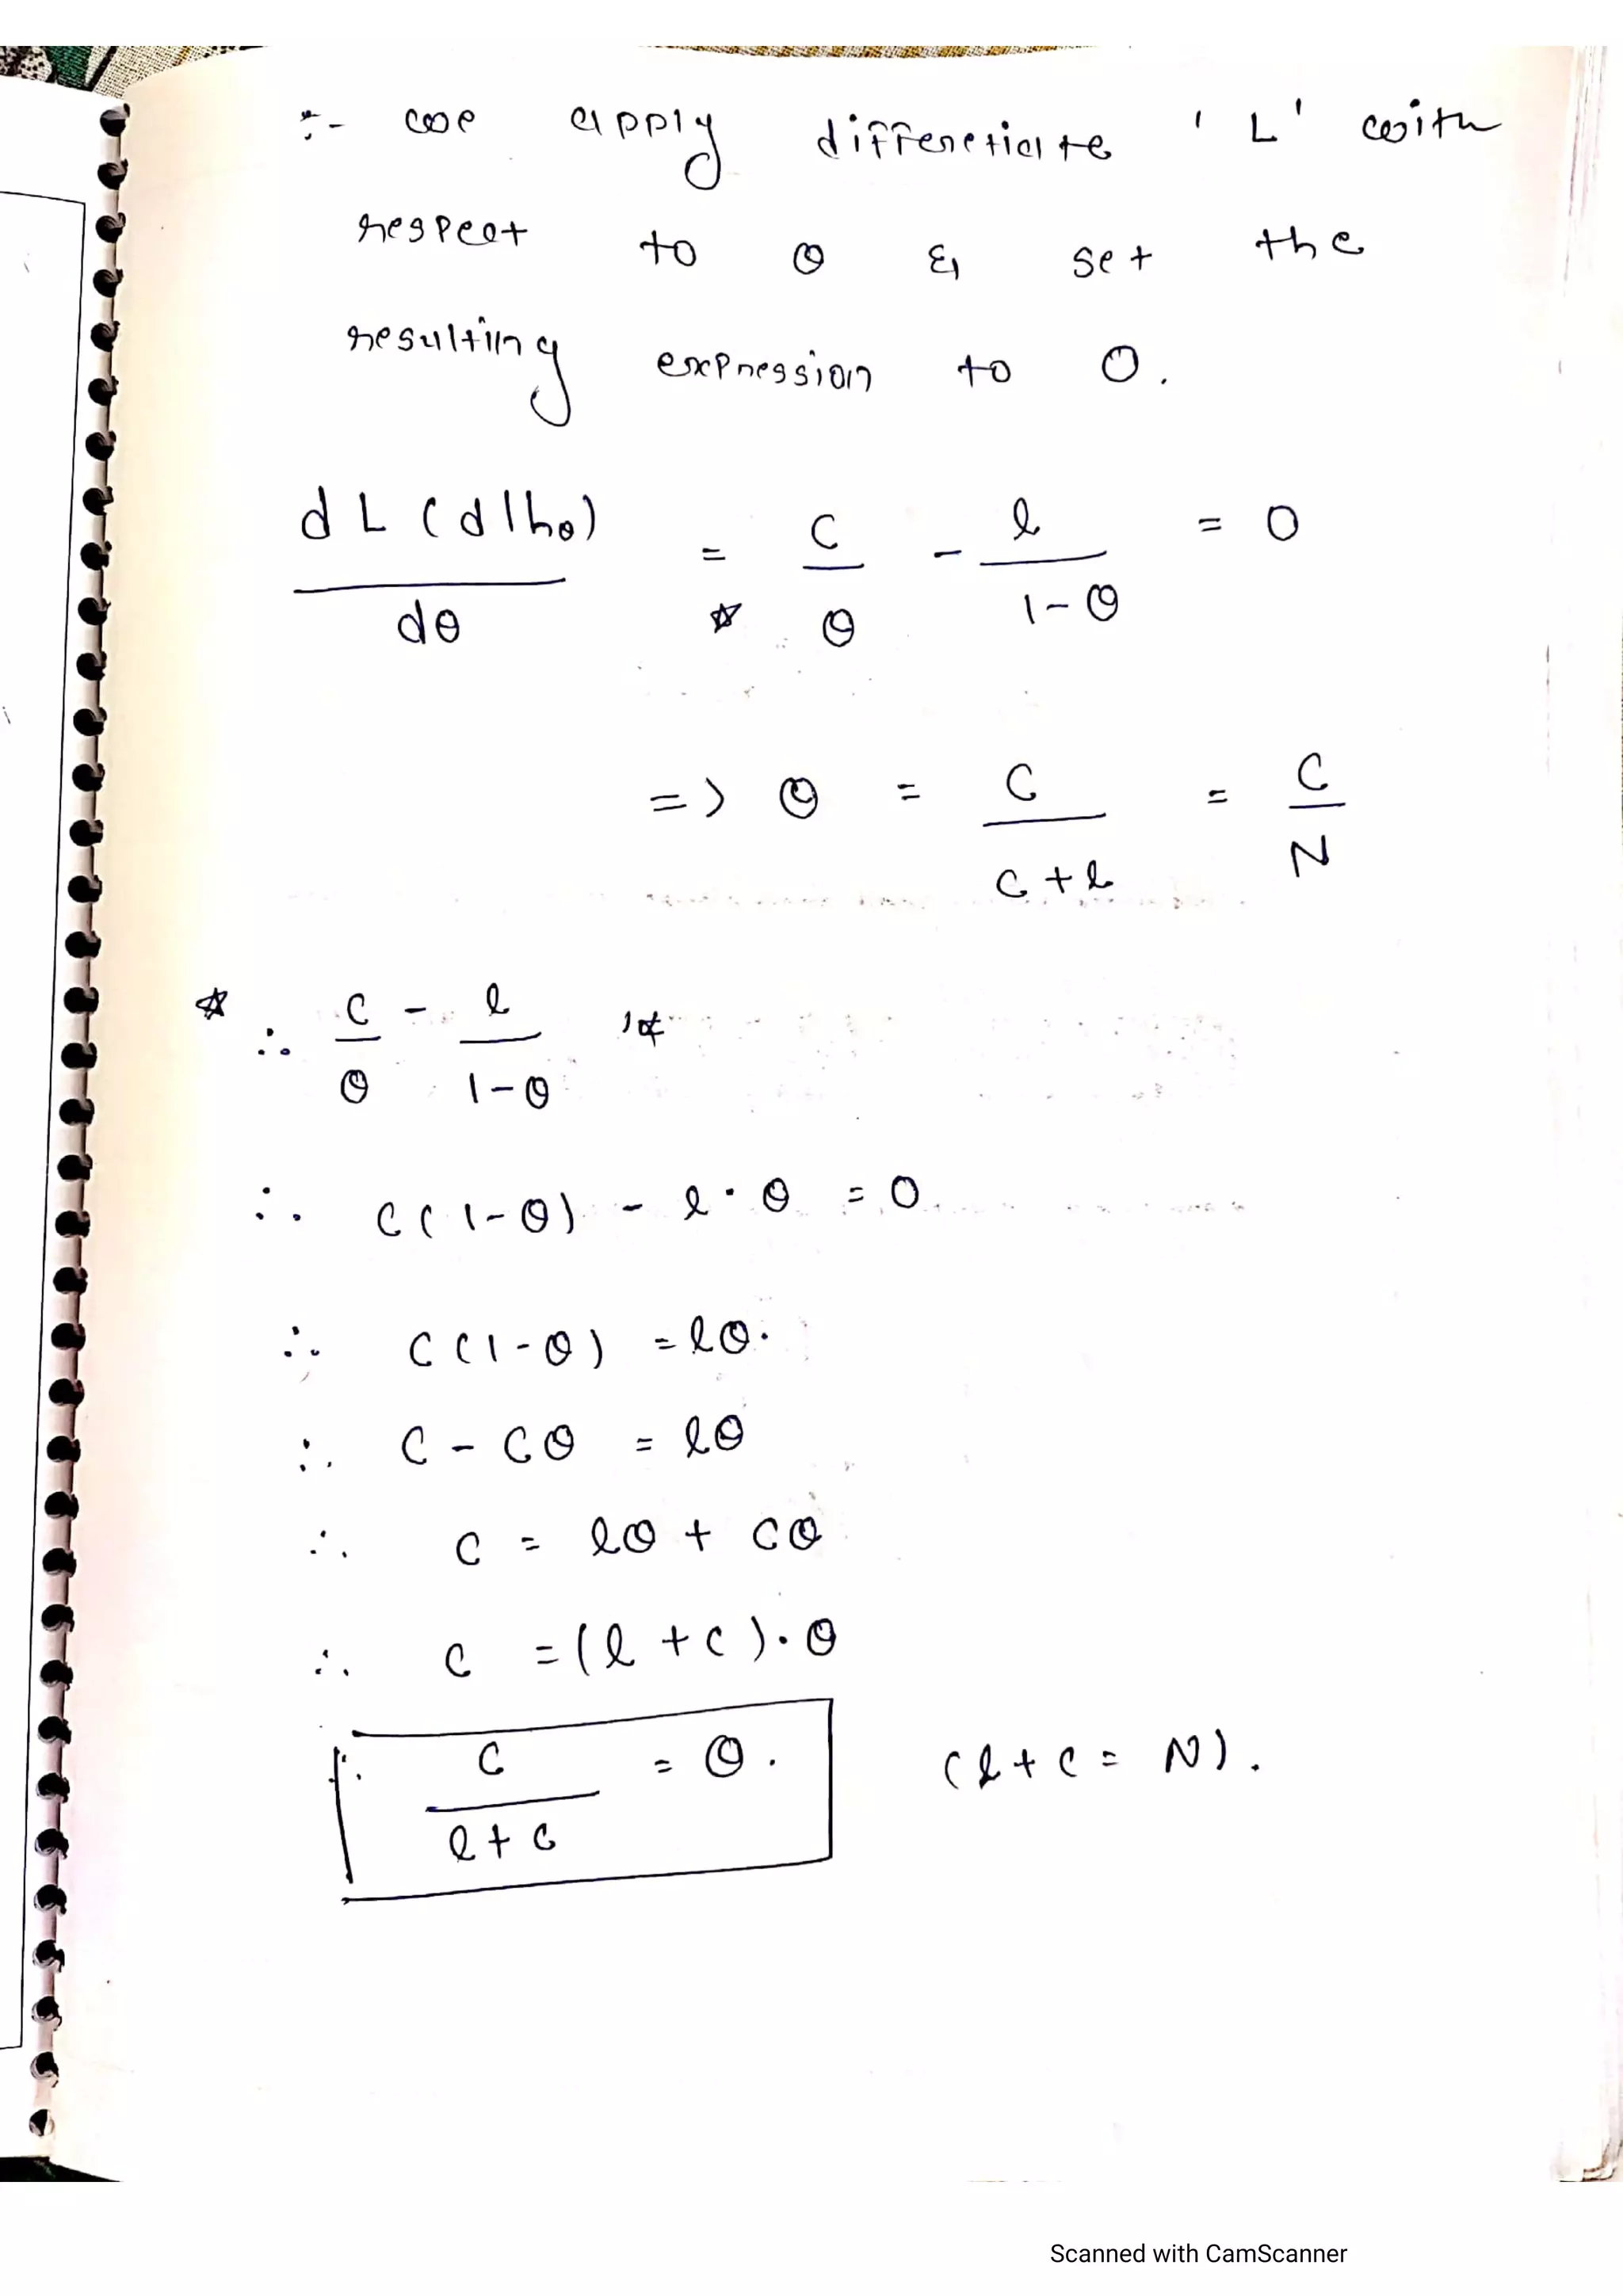 :- we apply differetiate 'L' with
respect to θ & set the
resulting expression to 0.
dL(d|hθ)/dθ = c/θ - l/(1-θ) = 0
☆
=> θ = c/(c+l) = c/N
☆ ∴ c/θ - l/(1-θ)
∴ c(1-θ) - l·θ = 0.
∴ c(1-θ) = lθ.
∴ c - cθ = lθ
∴ c = lθ + cθ
∴ c = (l+c)·θ
∴ c/(l+c) = θ. (l+c = N).
Scanned with CamScanner